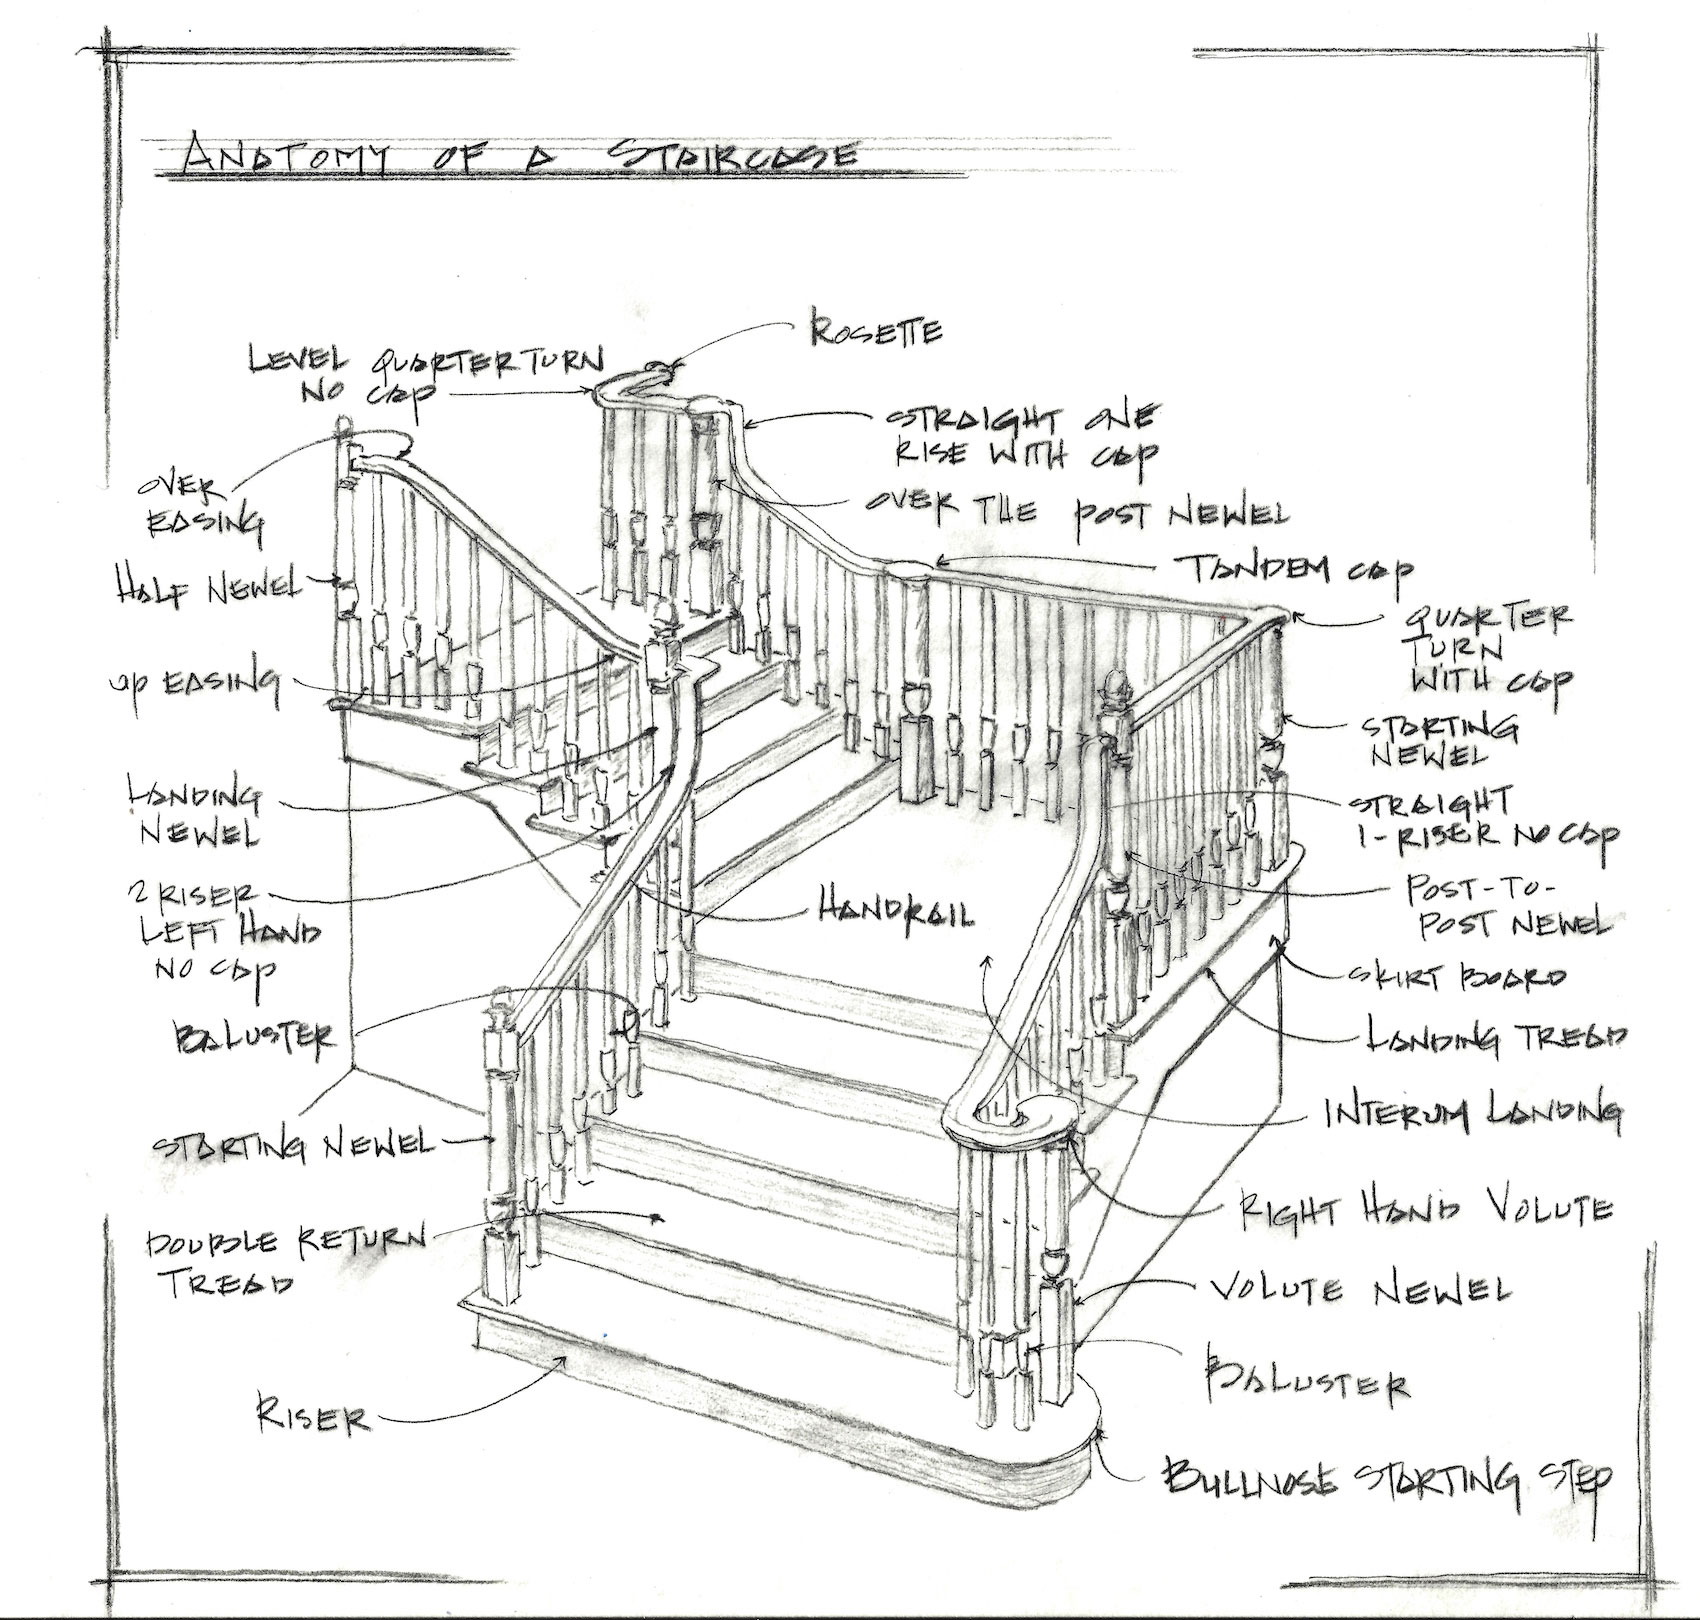 ANATOMY OF A STAIRCASE
ROSETTE
LEVEL QUARTER TURN
NO CAP
STRAIGHT ONE
RISE WITH CAP
OVER
EASING
OVER THE POST NEWEL
TANDEM CAP
HALF NEWEL
QUARTER
TURN
WITH CAP
UP EASING
STARTING
NEWEL
LANDING
NEWEL
STRAIGHT
1-RISER NO CAP
2 RISER
LEFT HAND
NO CAP
HANDRAIL
POST-TO-
POST NEWEL
SKIRT BOARD
BALUSTER
LANDING TREAD
STARTING NEWEL
INTERUM LANDING
RIGHT HAND VOLUTE
DOUBLE RETURN
TREAD
VOLUTE NEWEL
BALUSTER
RISER
BULLNOSE STARTING STEP